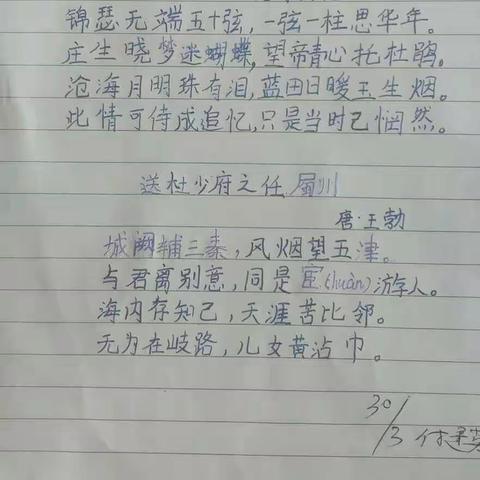 锦瑟无端五十弦，一弦一柱思华年。
庄生晓梦迷蝴蝶，望帝春心托杜鹃。
沧海月明珠有泪，蓝田日暖玉生烟。
此情可待成追忆，只是当时已惘然。
送杜少府之任蜀州
唐·王勃
城阙辅三秦，风烟望五津。
与君离别意，同是宦(huàn)游人。
海内存知己，天涯若比邻。
无为在歧路，儿女共沾巾。
30/3